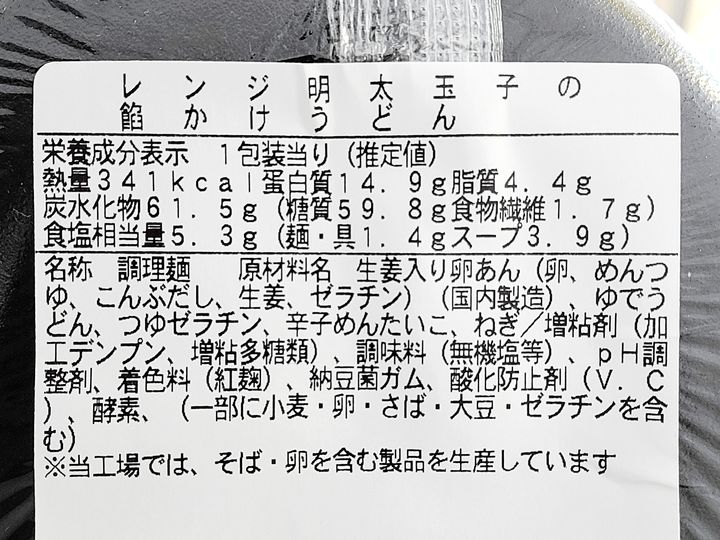 レンジ明太玉子の
餡かけうどん
栄養成分表示　1包装当り（推定値）
熱量341kcal蛋白質14.9g脂質4.4g
炭水化物61.5g（糖質59.8g食物繊維1.7g）
食塩相当量5.3g（麺・具1.4gスープ3.9g）
名称　調理麺　　原材料名　生姜入り卵あん（卵、めんつ
ゆ、こんぶだし、生姜、ゼラチン）（国内製造）、ゆでう
どん、つゆゼラチン、辛子めんたいこ、ねぎ／増粘剤（加
工デンプン、増粘多糖類）、調味料（無機塩等）、pH調
整剤、着色料（紅麹）、納豆菌ガム、酸化防止剤（V.C
）、酵素、（一部に小麦・卵・さば・大豆・ゼラチンを含
む）
※当工場では、そば・卵を含む製品を生産しています